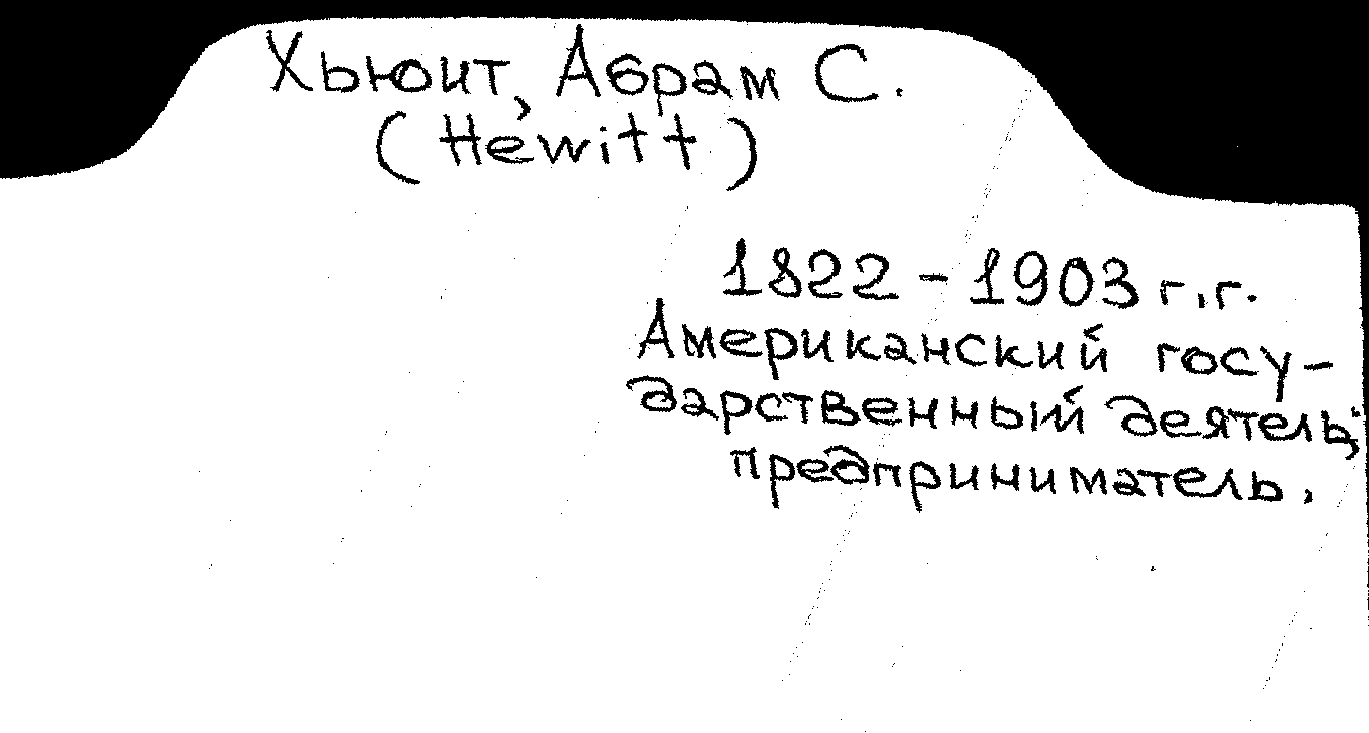 Хьюит, Абрам С.
(Hewitt)
1822 - 1903 г.г.
Американский госу-
дарственный деятель,
предприниматель.